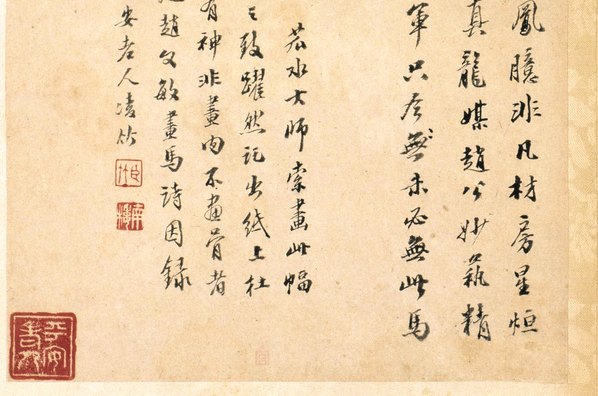 鳳臆非凡材房星
真龍媒趙公妙蓺精
軍只無未必無此馬
若水大師索畫此幅
致躍然出紙上杜
有神非畫肉不畫骨者
趙文敏畫馬詩因録
安老人凌竹